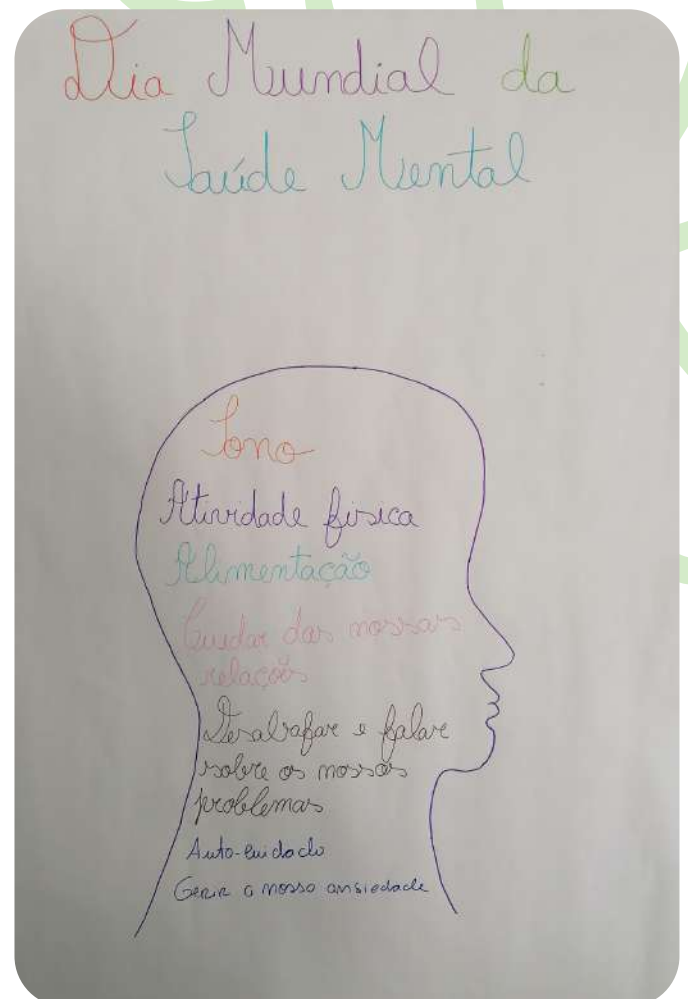 Dia Mundial da
Saúde Mental
Sono
Atividade física
Alimentação
Cuidar das nossas
relações
Desabafar e falar
sobre os nossos
problemas
Auto-cuidado
Gerir a nossa ansiedade